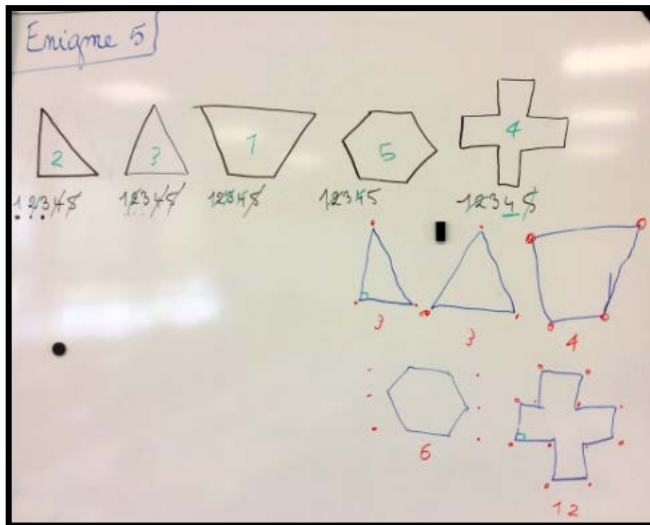 Enigme 5
2 3 1 5 4
12345 12345 12345 12345 12345
3 3 4
6 12